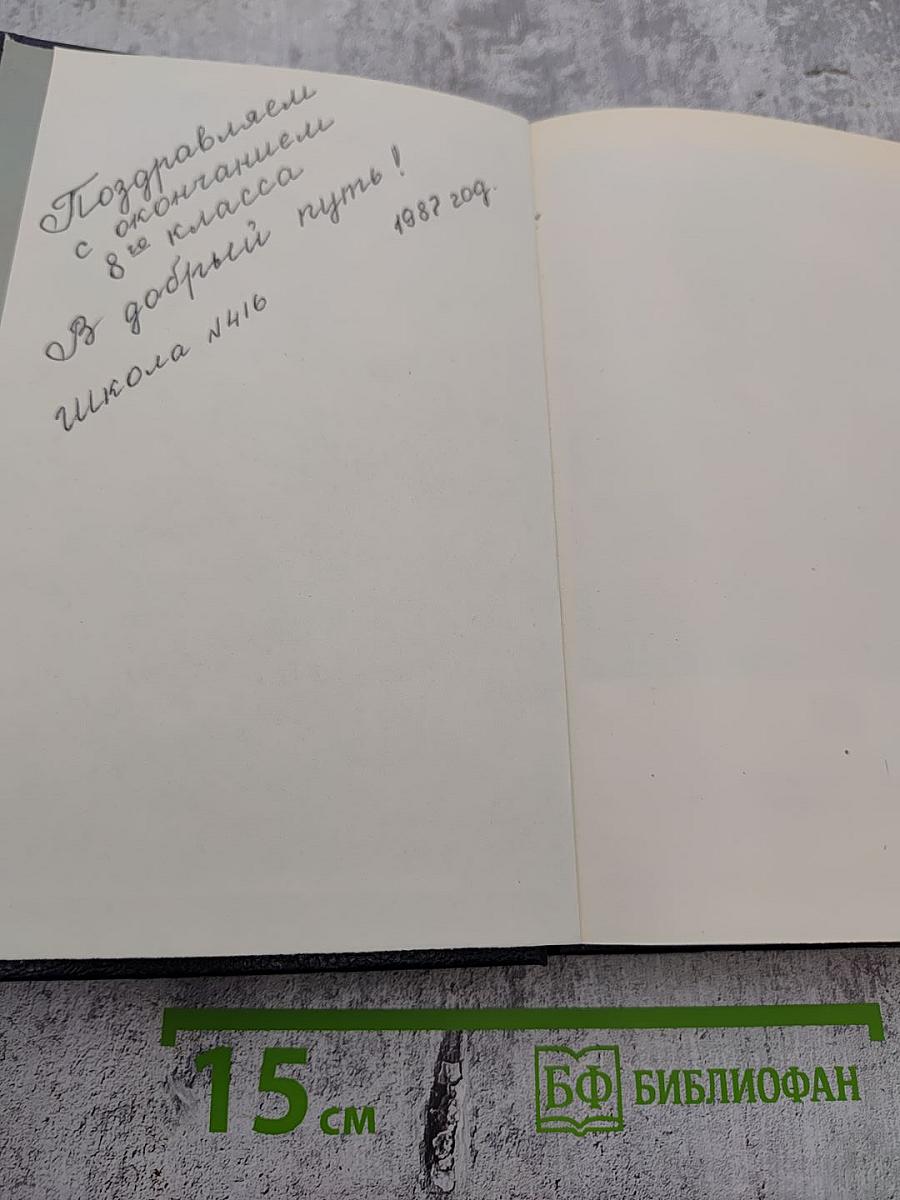 Поздравляем
с окончанием
8го класса
В добрый путь!
1987 год.
Школа N416
15 см
БФ БИБЛИОФАН